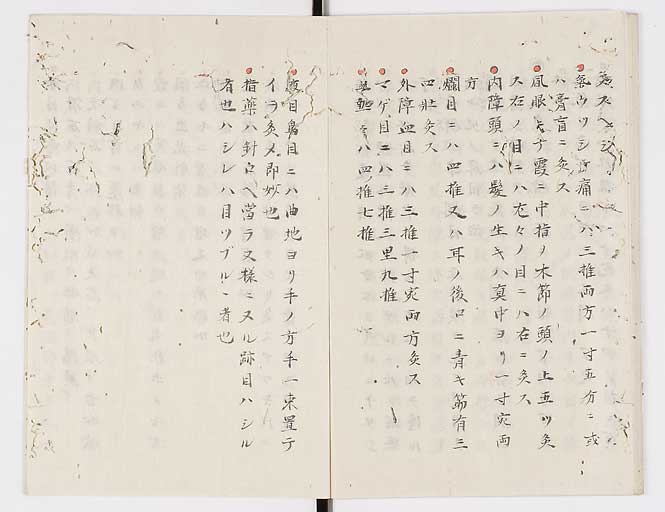 灸スヘシ
気ウツシテ痛ニハ三推両方一寸五分ニ或
ハ膏盲ニ灸ス
風眼ヒチ霞ニ中指ヲ本節ノ頭ノ上五ツ灸
ス右ノ目ニハ左々ノ目ニハ右ニ灸ス
内障頭ニハ髪ノ生キハ真中ヨリ一寸宛両
方
爛目ニハ四推又ハ耳ノ後ロニ青キ筋有三
四壮灸ス
外障血目ニハ三推一寸宛両方灸ス
マゲ目ニハ三推三里九推
ハ四推七推
疲目鳥目ニハ曲地ヨリ手ノ方手一束置テ
イラ灸メ即妙也
指薬ハ針口ヘ當ラヌ様ニヌル跡目ハシル
者也ハシレハ目ツブルヽ者也